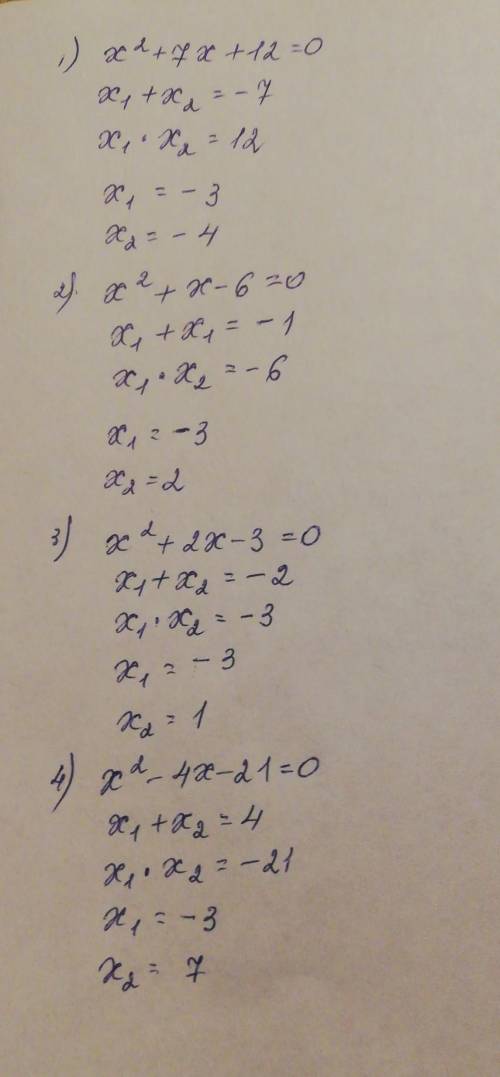 1) x² + 7x + 12 = 0
x₁ + x₂ = - 7
x₁ · x₂ = 12
x₁ = - 3
x₂ = - 4
2). x² + x - 6 = 0
x₁ + x₁ = - 1
x₁ · x₂ = - 6
x₁ = - 3
x₂ = 2
3) x² + 2x - 3 = 0
x₁ + x₂ = - 2
x₁ · x₂ = - 3
x₁ = - 3
x₂ = 1
4) x² - 4x - 21 = 0
x₁ + x₂ = 4
x₁ · x₂ = - 21
x₁ = - 3
x₂ = 7